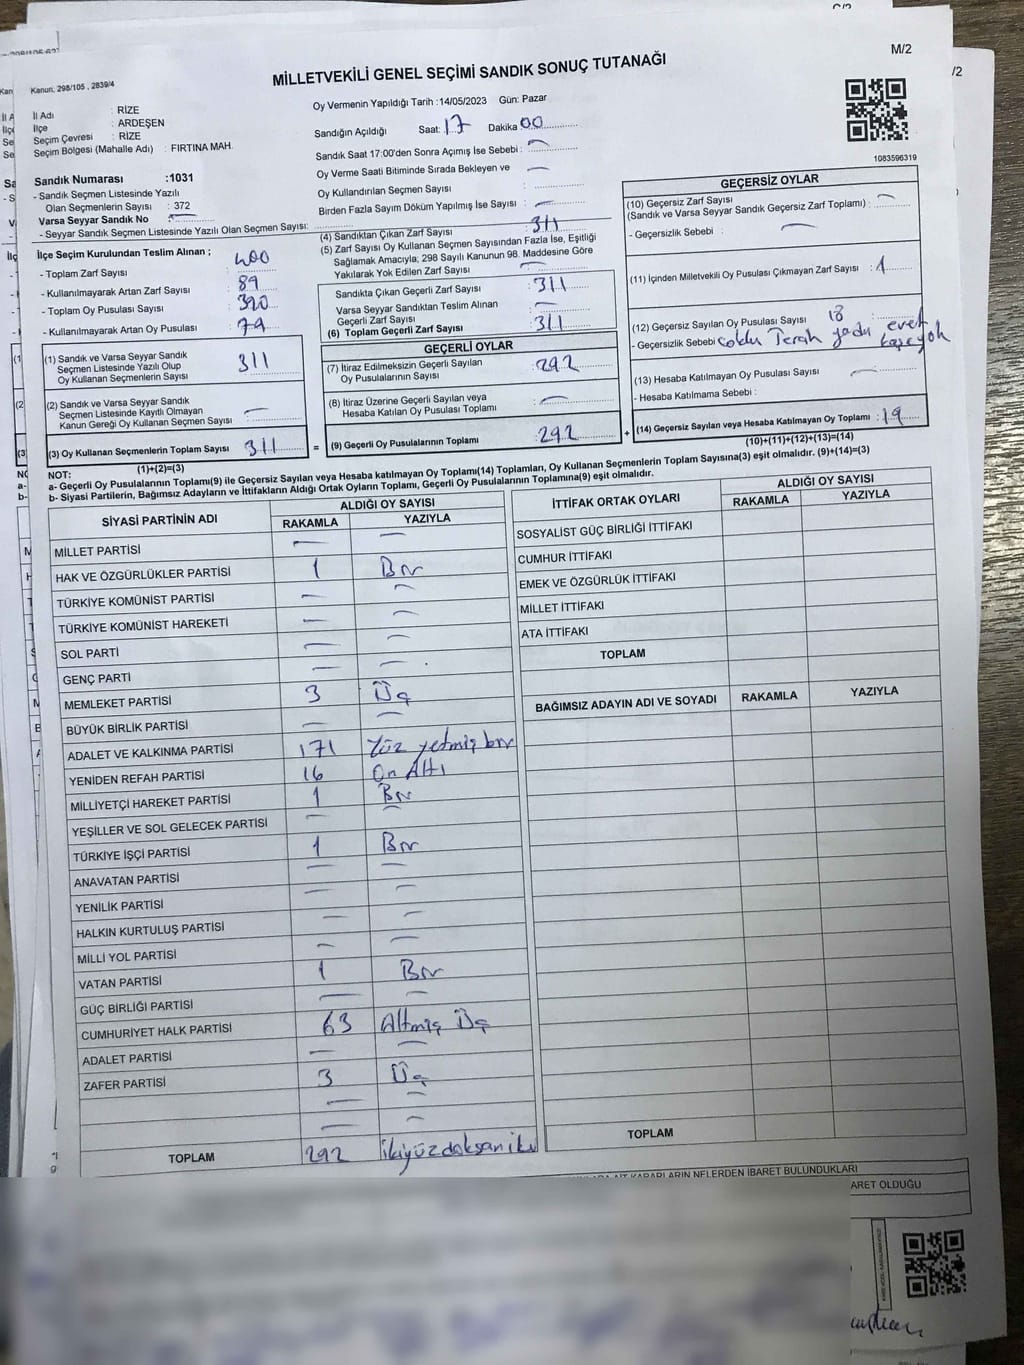 M/2
Kanun, 298/105 , 2839/4
MİLLETVEKİLİ GENEL SEÇİMİ SANDIK SONUÇ TUTANAĞI
İl Adı : RİZE
İlçe : ARDEŞEN
Seçim Çevresi : RİZE
Seçim Bölgesi (Mahalle Adı) : FIRTINA MAH.
Sandık Numarası :1031
- Sandık Seçmen Listesinde Yazılı
Olan Seçmenlerin Sayısı : 372
Varsa Seyyar Sandık No :
- Seyyar Sandık Seçmen Listesinde Yazılı Olan Seçmen Sayısı:
Oy Vermenin Yapıldığı Tarih :14/05/2023 Gün: Pazar
Sandığın Açıldığı Saat: 17 Dakika 00
Sandık Saat 17:00'den Sonra Açımış İse Sebebi :
Oy Verme Saati Bitiminde Sırada Bekleyen ve
Oy Kullandırılan Seçmen Sayısı :
Birden Fazla Sayım Döküm Yapılmış İse Sayısı :
1083596319
İlçe Seçim Kurulundan Teslim Alınan ;
- Toplam Zarf Sayısı : 400
- Kullanılmayarak Artan Zarf Sayısı : 89
- Toplam Oy Pusulası Sayısı : 390
- Kullanılmayarak Artan Oy Pusulası : 79
(1) Sandık ve Varsa Seyyar Sandık
Seçmen Listesinde Yazılı Olup
Oy Kullanan Seçmenlerin Sayısı : 311
(2) Sandık ve Varsa Seyyar Sandık
Seçmen Listesinde Kayıtlı Olmayan
Kanun Gereği Oy Kullanan Seçmen Sayısı :
(3) Oy Kullanan Seçmenlerin Toplam Sayısı : 311
(1)+(2)=(3)
(4) Sandıktan Çıkan Zarf Sayısı : 311
(5) Zarf Sayısı Oy Kullanan Seçmen Sayısından Fazla İse, Eşitliği
Sağlamak Amacıyla; 298 Sayılı Kanunun 98. Maddesine Göre
Yakılarak Yok Edilen Zarf Sayısı :
Sandıkta Çıkan Geçerli Zarf Sayısı : 311
Varsa Seyyar Sandıktan Teslim Alınan
Geçerli Zarf Sayısı :
(6) Toplam Geçerli Zarf Sayısı : 311
GEÇERLİ OYLAR
(7) İtiraz Edilmeksizin Geçerli Sayılan
Oy Pusulalarının Sayısı : 292
(8) İtiraz Üzerine Geçerli Sayılan veya
Hesaba Katılan Oy Pusulası Toplamı :
= (9) Geçerli Oy Pusulalarının Toplamı : 292
GEÇERSİZ OYLAR
(10) Geçersiz Zarf Sayısı
(Sandık ve Varsa Seyyar Sandık Geçersiz Zarf Toplamı) :
- Geçersizlik Sebebi :
(11) İçinden Milletvekili Oy Pusulası Çıkmayan Zarf Sayısı : 1
(12) Geçersiz Sayılan Oy Pusulası Sayısı : 18
- Geçersizlik Sebebi evet
(13) Hesaba Katılmayan Oy Pusulası Sayısı :
- Hesaba Katılmama Sebebi :
+ (14) Geçersiz Sayılan veya Hesaba Katılmayan Oy Toplamı : 19
(10)+(11)+(12)+(13)=(14)
NOT:
a- Geçerli Oy Pusulalarının Toplamı(9) ile Geçersiz Sayılan veya Hesaba katılmayan Oy Toplamı(14) Toplamları, Oy Kullanan Seçmenlerin Toplam Sayısına(3) eşit olmalıdır. (9)+(14)=(3)
b- Siyasi Partilerin, Bağımsız Adayların ve İttifakların Aldığı Ortak Oyların Toplamı, Geçerli Oy Pusulalarının Toplamına(9) eşit olmalıdır.
SİYASİ PARTİNİN ADI ALDIĞI OY SAYISI
RAKAMLA YAZIYLA
MİLLET PARTİSİ
HAK VE ÖZGÜRLÜKLER PARTİSİ 1 Bir
TÜRKİYE KOMÜNİST PARTİSİ
TÜRKİYE KOMÜNİST HAREKETİ
SOL PARTİ
GENÇ PARTİ
MEMLEKET PARTİSİ 3 Üç
BÜYÜK BİRLİK PARTİSİ
ADALET VE KALKINMA PARTİSİ 171 Yüz yetmiş bir
YENİDEN REFAH PARTİSİ 16 On Altı
MİLLİYETÇİ HAREKET PARTİSİ 1 Bir
YEŞİLLER VE SOL GELECEK PARTİSİ
TÜRKİYE İŞÇİ PARTİSİ 1 Bir
ANAVATAN PARTİSİ
YENİLİK PARTİSİ
HALKIN KURTULUŞ PARTİSİ
MİLLİ YOL PARTİSİ
VATAN PARTİSİ 1 Bir
GÜÇ BİRLİĞİ PARTİSİ
CUMHURİYET HALK PARTİSİ 63 Altmış Üç
ADALET PARTİSİ
ZAFER PARTİSİ 3 Üç
TOPLAM 292 ikiyüzdoksaniki
İTTİFAK ORTAK OYLARI ALDIĞI OY SAYISI
RAKAMLA YAZIYLA
SOSYALİST GÜÇ BİRLİĞİ İTTİFAKI
CUMHUR İTTİFAKI
EMEK VE ÖZGÜRLÜK İTTİFAKI
MİLLET İTTİFAKI
ATA İTTİFAKI
TOPLAM
BAĞIMSIZ ADAYIN ADI VE SOYADI RAKAMLA YAZIYLA
TOPLAM
KARARLARIN NELERDEN İBARET BULUNDUKLARI
ARET OLDUĞU